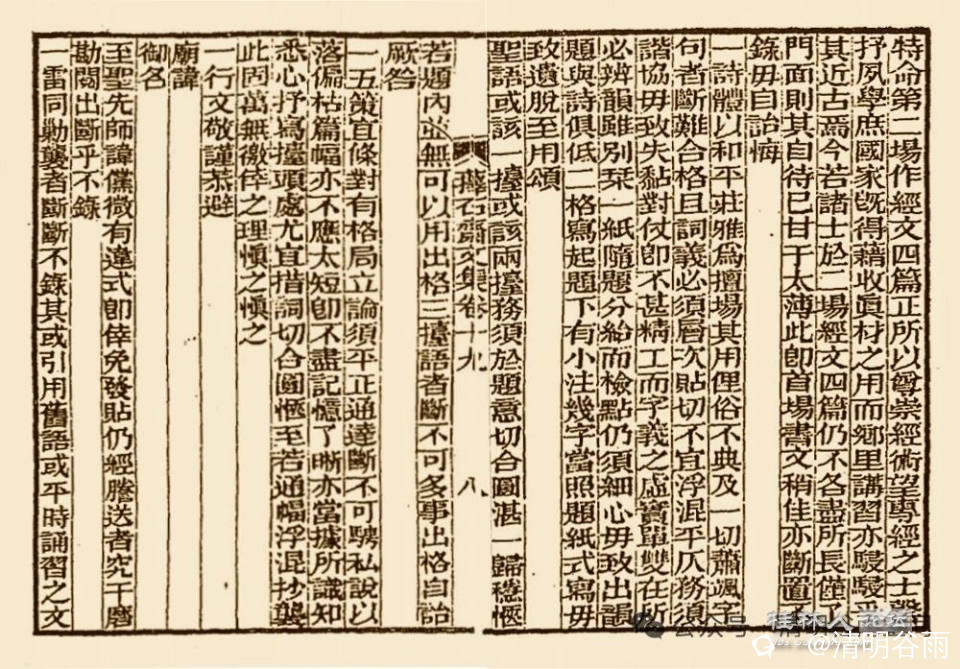 特命第二場作經文四篇正所以尊崇經術望專經之士聲
抒夙學庶國家旣得藉收眞材之用而鄉里講習亦駸駸
其近古焉今若諸士於二場經文四篇仍不各盡所長僅了
門面則其自待已甘于太薄此卽首場書文稍佳亦斷置不
錄毋自詒悔
一詩體以和平莊雅爲擅場其用俚俗不典及一切蕭颯字
句者斷難合格且詞義必須層次貼切不宜浮混平仄務須
諧協毋致失黏對仗卽不甚精工而字義之虛實單雙在所
必辨韻雖別栞一紙隨題分給而檢點仍須細心毋致出韻
題與詩俱低二格寫起題下有小注幾字當照題紙式寫毋
致遺脫至用頌
聖語或該一擡或該兩擡務須於題意切合圓湛一歸穩愜
擇石齋文集卷十九 八
若題內並無可以用出格三擡語者斷不可多事出格自詒
厥咎
一五策宜條對有格局立論須平正通達斷不可騁私說以
落偏枯篇幅亦不應太短卽不盡記憶了晰亦當據所識知
悉心抒寫擡頭處尤宜措詞切合圓愜至若通幅浮混抄襲
此固萬無徼倖之理愼之愼之
一行文敬謹恭避
廟諱
御名
至聖先師諱儻微有違式卽倖免發貼仍經謄送者究干磨
勘閱出斷乎不錄
一雷同勦襲者斷斷不錄其或引用舊語或平時誦習之文
桂林人论坛
公众号
@清明谷雨